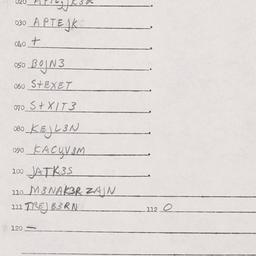 030 APTEJK .
040 + .
050 BOJN3 .
060 S+EXET .
070 S+XIT3 .
080 KEJL3N .
090 KACYV3M .
100 JATK3S .
110 M3NAK3R ZAJN
111 TREJB3RN 112 O
120 —